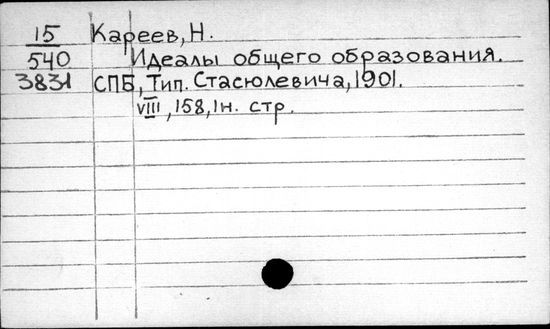 15 Кареев, Н.
540 Идеалы общего образования.
3831 СПБ, Тип. Стасюлевича, 1901.
VIII, 158, 1н. стр.